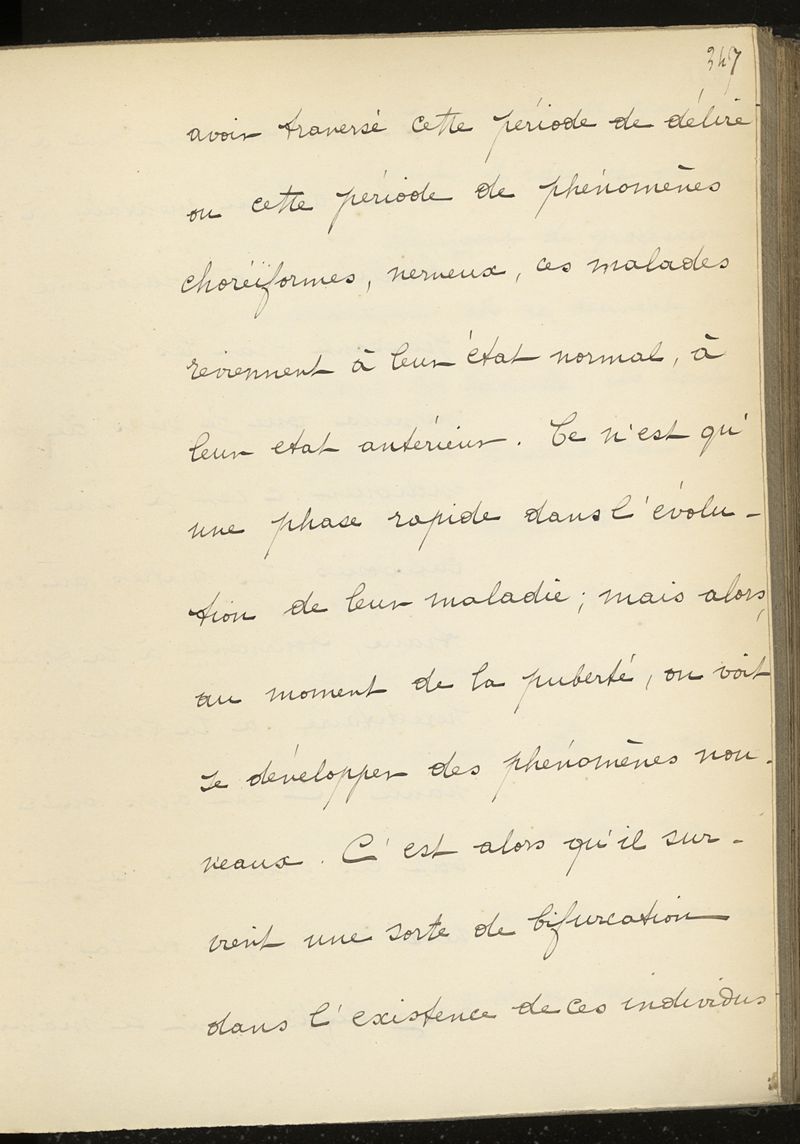 347
avoir traversé cette période de délire
ou cette période de phénomènes
choréïformes, nerveux, ces malades
reviennent à leur état normal, à
leur etat antérieur. Ce n'est qu'
une phase rapide dans l'évolu-
tion de leur maladie; mais alors,
au moment de la puberté, on voit
se développer des phénomènes nou-
veaux. C'est alors qu'il sur-
vient une sorte de bifurcation
dans l'existence de ces individus